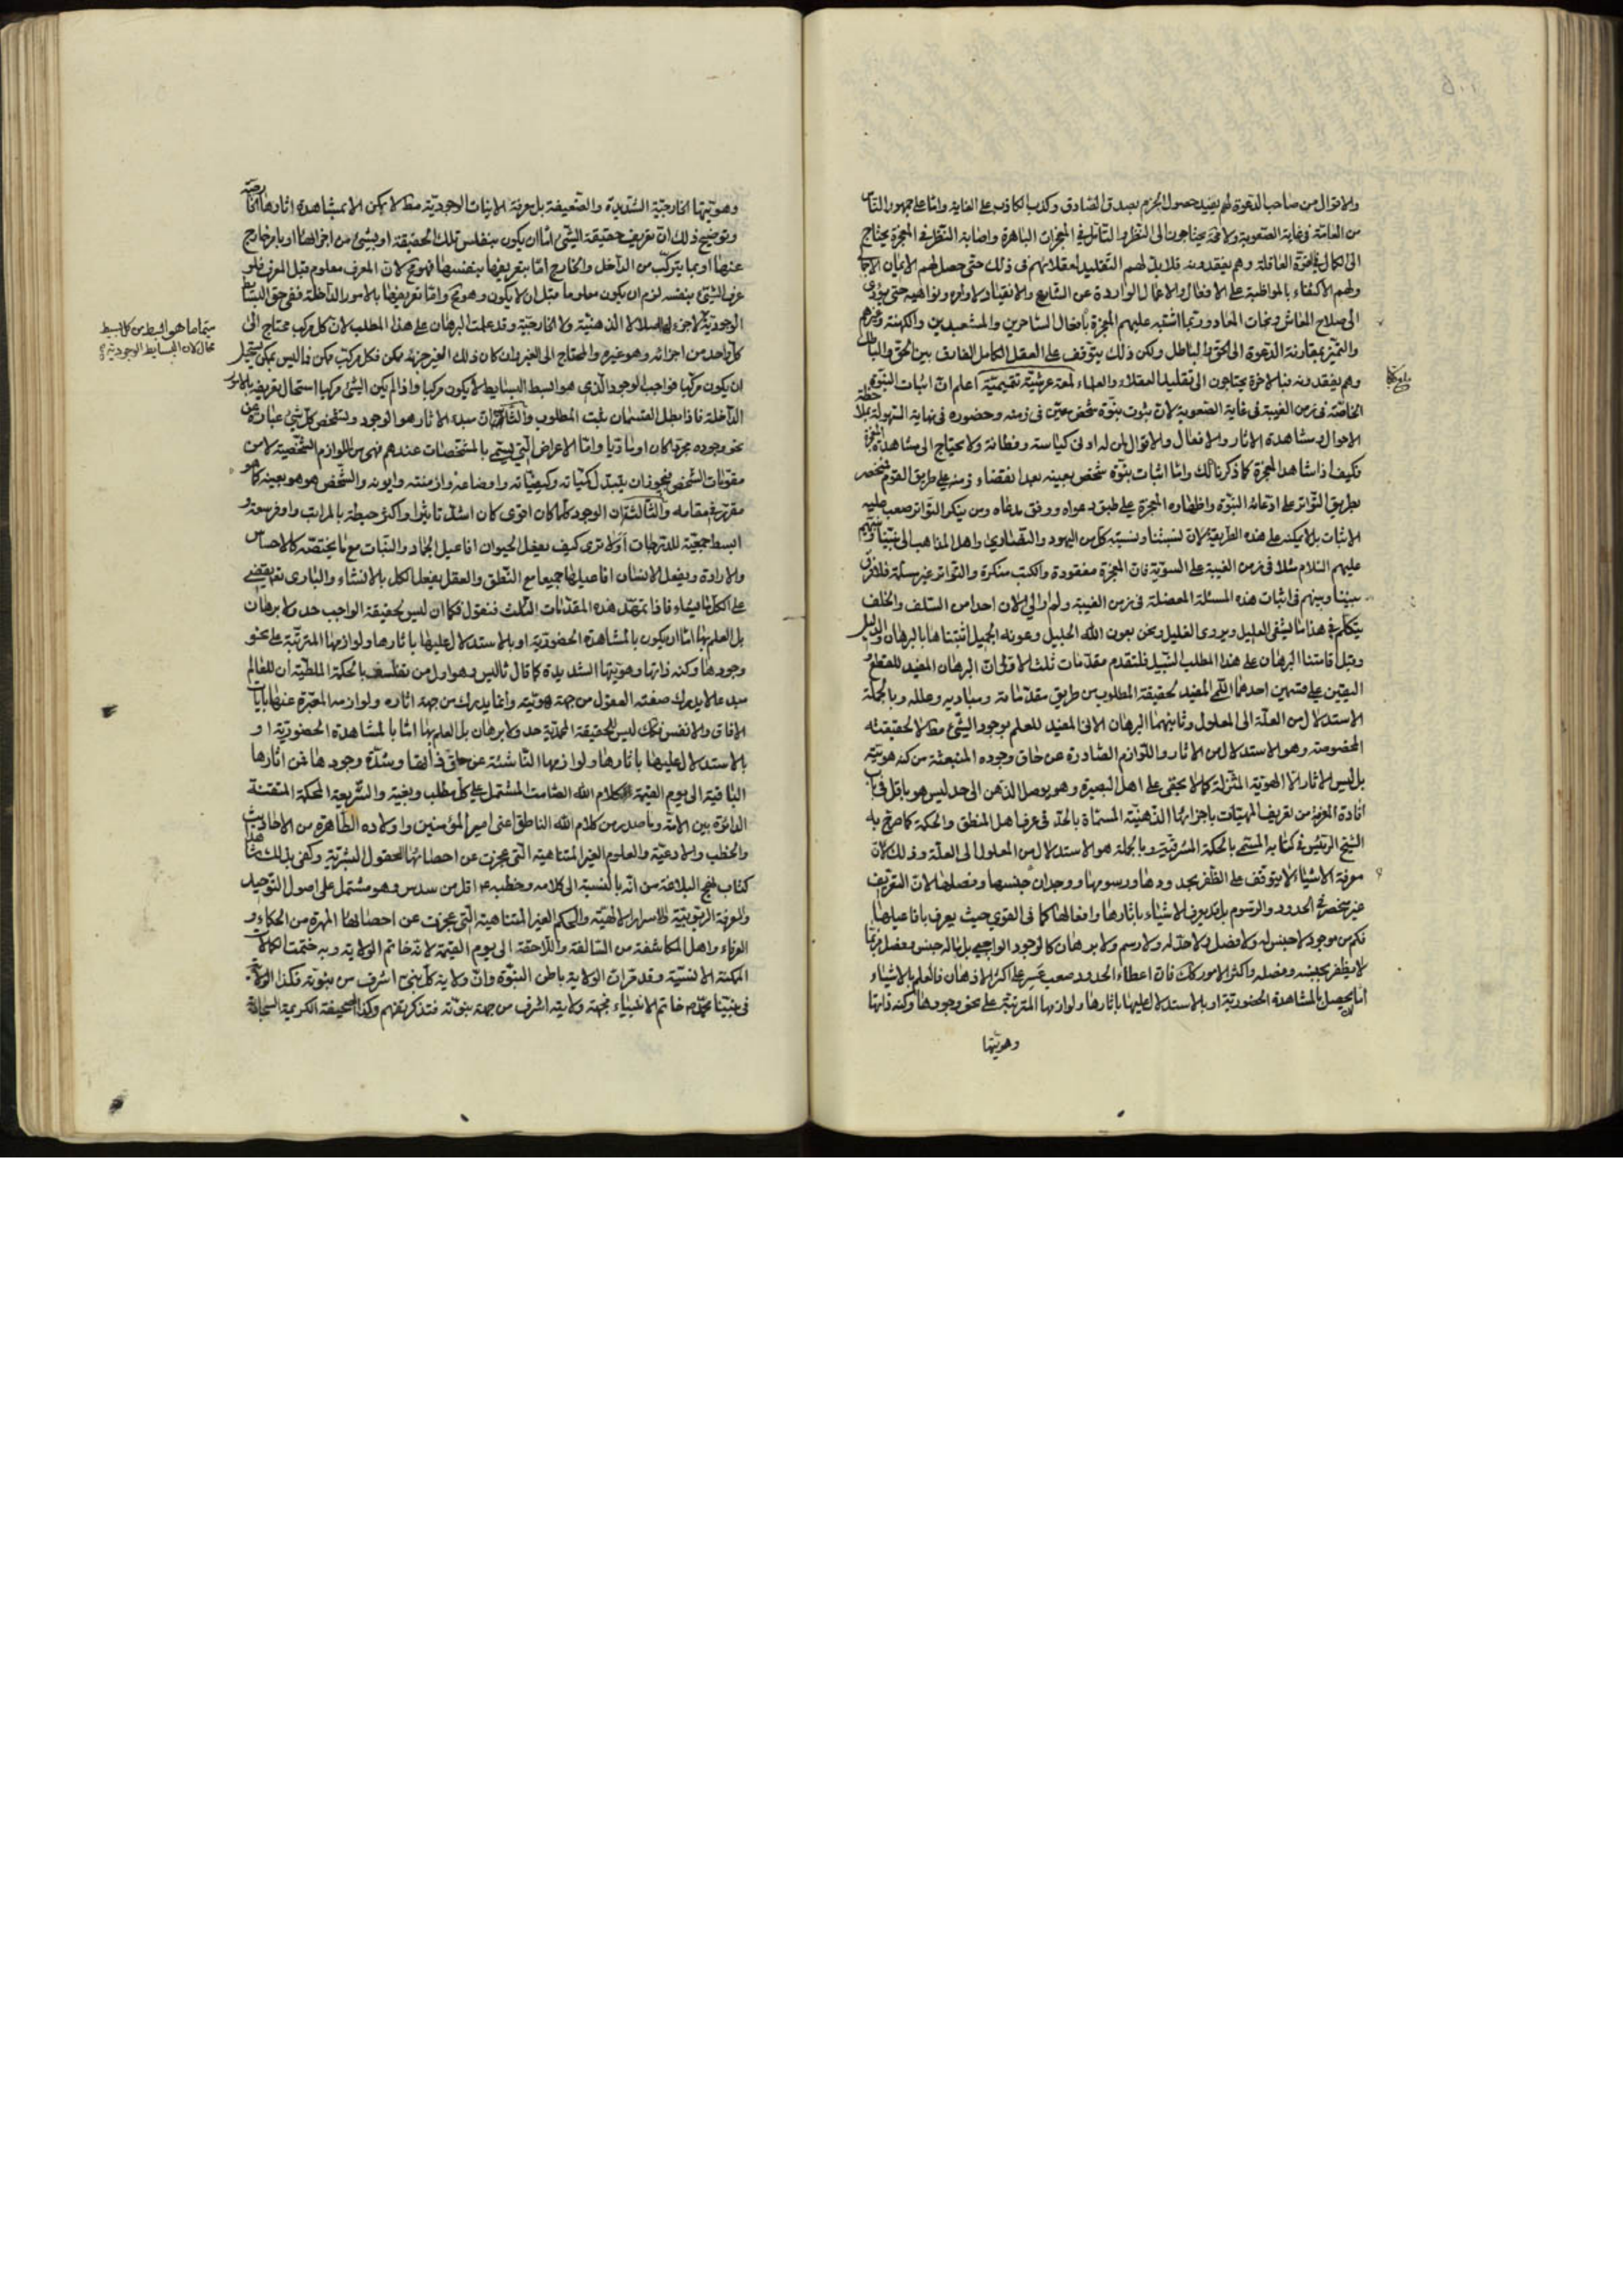 والاقوال من صاحب الدعوة لهم يفيد حصول الجزم بصدق الصادق وكذب الكاذب على الغاية واما على جمهور الناس
من العامة فى غاية الصعوبة ولا محة يحتاجون الى النظر والتأمل فى المعجزات الباهرة واصابة النظر فى المعجزة يحتاج
الى كمال فى القوة العاقلة وهم يفقدونه فلا بد لهم التقليد لعقلائهم فى ذلك حتى حصل لهم الايمان الاجمالى
ولهم الاكتفاء بالمواظبة على الافعال والاعمال الواردة عن الشارع والانقياد لاوامره ونواهيه حتى يؤدى
الى صلاح المعاش ونجات المعاد وربما اشتبه عليهم المعجزة بافعال الساحرين والمشعبدين والكهنة وغيرهم
والتميز بمقارنة الدعوة الى الحق والباطل ولكن ذلك يتوقف على العقل الكامل الفارق بين الحق والباطل
وهم يفقدونه فبالاخرة يحتاجون الى تقليد العقلاء والعلماء لمعة عرشية تقيمية اعلم ان اثبات النبوة
الخاصة فى زمن الغيبة فى غاية الصعوبة لان ثبوت نبوة شخص معين فى زمنه وحضوره فى نهاية السهولة بملاحظة
الاحوال ومشاهدة الاثار والافعال والاقوال لمن له ادنى كياسة وفطانة ولا يحتاج الى مشاهدة المعجزة
فكيف اذا شاهد المعجزة كما ذكرنا لك واما اثبات نبوة شخص بعينه بعد انقضاء زمنه على طريق القوم منحصر
بطريق التواتر على ادعائه النبوة واظهاره المعجزة على طبق دعواه ووفق مدعاه ومن ينكر التواتر صعب عليه
الاثبات بل لا يمكنه على هذه الطريقة لان نسبتنا ونسبة كل من اليهود والنصارى واهل المذاهب الى نبينا ونبيهم
عليهم السلام مثلا فى زمن الغيبة على السوية فان المعجزة مفقودة والكتب منكرة والتواتر غير مسلمة فلا فرق
بيننا وبينهم فى اثبات هذه المسئلة المعضلة فى زمن الغيبة ولم ار الى الان احدا من السلف والخلف
يتكلم فى هذا ما يشفى العليل ويروى الغليل ونحن بعون الله الجليل وعونه الجميل اثبتناها بالبرهان والدليل
وقبل اقامتنا البرهان على هذا المطلب النبيل فلنقدم مقدمات ثلث الاولى ان البرهان المفيد للقطع و
اليقين على قسمين احدهما اللمى المفيد لحقيقة المطلوب من طريق مقدماته ومباديه وعلله وبالجملة
الاستدلال من العلة الى المعلول وثانيهما البرهان الانى المفيد للعلم بوجود الشئ فقط لا لحقيقته
المخصوصة وهو الاستدلال من الاثار واللوازم الصادرة عن حاق وجوده المنبعثة من كنه هويته
بل ليس الاثار الا الهوية المتنزلة كما لا يخفى على اهل البصيرة وهو يوصل الذهن الى حد ليس هو باقل فى باب
افادة المعرفة من تعريف المهيات باجزائها الذهنية المسماة بالحد فى عرف اهل المنطق والحكمة كما صرح به
الشيخ الرئيس فى كتابه المسمى بالحكمة المشرقية وبالجملة هو الاستدلال من المعلول الى العلة وذلك لان
معرفة الاشياء لا يتوقف على الظفر بحدودها ورسومها ووجدان جنسها وفصلها لان التعريف
غير منحصر فى الحدود والرسوم بل قد يعرف الاشياء باثارها وافعالها كما فى القوى حيث يعرف بافاعيلها
فكم من موجود لا جنس له ولا فصل ولا حد له ولا رسم ولا برهان كالوجود الواجبى بل ماله جنس وفصل فربما
لا يظفر بجنسه وفصله واكثر الامور كذلك فان اعطاء الحدود صعب عسر على اكثر الاذهان فالعلم بالاشياء
اما يحصل بالمشاهدة الحضورية او بالاستدلال عليها باثارها ولوازمها المترتبة على نحو وجودها وكنه ذاتها
وهويتها
وهويتها الخارجية الشديدة والضعيفة بل معرفة الانيات الوجودية فقط لا يمكن الا بمشاهدة اثارها الخارجية
وتوضيح ذلك ان تعريف حقيقة الشئ اما ان يكون بنفس تلك الحقيقة او بشئ من اجزائها او بامر خارج
عنها او بما يتركب من الداخل والخارج اما تعريفها بنفسها فهو مح لان المعرف معلوم قبل المعرف فلو
عرف الشئ بنفسه لزم ان يكون معلوما قبل ان لا يكون وهو مح واما تعريفها بالامور الداخلة ففى حق البسائط
الوجودية لا جزء لها اصلا لا الذهنية ولا الخارجية وقد علمت البرهان على هذا المطلب لان كل مركب محتاج الى
كل واحد من اجزائه وهو غيره والمحتاج الى الغير وان كان ذلك الغير جزئه ممكن فكل مركب ممكن فما ليس بممكن يستحيل
ان يكون مركبا فواجب الوجود الذى هو ابسط البسايط لا يكون مركبا واذا لم يكن الشئ مركبا استحال تعريفه بالامور
الداخلة فاذا بطل القسمان ثبت المطلوب والثانية ان مبدء الاثار هو الوجود وتشخص كل شئ عبارة عن
نحو وجوده مجردا كان او ماديا واما الاعراض التى يسمى بالمشخصات عندهم فهى من اللوازم الشخصية لا من
مقومات الشخص فيجوز ان يتبدل كمياته وكيفياته واوضاعه وازمنته وايونه والشخص هو هو بعينه كما هو
مقرر فى مقامه والثالثة ان الوجود كلما كان اقوى كان اشد تاثيرا واكثر حيطة بالمراتب واوفر سعة و
ابسط جمعية للدرجات أولا ترى كيف يفعل الحيوان افاعيل الجماد والنبات مع ما يختصه كالاحساس
والارادة ويفعل الانسان افاعيلها جميعا مع النطق والعقل يفعل الكل بالانشاء والبارى تعالى يفيض
على الكل ما يشاء فاذا تمهد هذه المقدمات الثلث فنقول فكما ان ليس لحقيقة الواجب حد ولا برهان
بل العلم بها اما ان يكون بالمشاهدة الحضورية او بالاستدلال عليها باثارها ولوازمها المترتبة على نحو
وجودها وكنه ذاتها وهويتها الشديدة كما قال ثاليس وهو اول من تفلسف بالحكمة الملطية ان للعالم
مبدعا لا يدرك صفته العقول من جهة هويته وانما يدرك من جهة اثاره ولوازمه المعبرة عنها بايات
الافاق والانفس فكذلك ليس للحقيقة المحمدية حد ولا برهان بل العلم بها اما بالمشاهدة الحضورية او
بالاستدلال عليها باثارها ولوازمها الناشئة عن حاق ذاتها وشدة وجودها فمن اثارها
الباقية الى يوم القيمة الكلام الله الصامت المشتمل على كل مطلب وبغية والشريعة المحكمة المتقنة
الدائرة بين الامة وما صدر من كلام الله الناطق اعنى امير المؤمنين واولاده الطاهرة من الاحاديث
والخطب والادعية والعلوم الغير المتناهية التى عجزت عن احصائها العقول البشرية وكفى بذلك شاهدا
كتاب نهج البلاغة من انه بالنسبة الى كلامه وخطبه ع اقل من سدس وهو مشتمل على اصول التوحيد
والمعرفة الربوبية والاسرار الالهية والحكم الغير المتناهية التى عجزت عن احصائها المهرة من الحكماء و
العرفاء واهل المكاشفة من السالفة واللاحقة الى يوم القيمة لانه خاتم الولاية وبه ختمت الكمالات
الممكنة الانسية وقد قر ان الولاية باطن النبوة وان ولاية كل نبى اشرف من نبوته فكذا الولاية
فى نبينا محمد ص خاتم الانبياء فجهة ولايته اشرف من جهة نبوته فتذكر تفهم وكذا الصحيفة الكريمة السجادية
سيما ما هو ابسط من كل بسيط
محال كان البسايط الوجودية